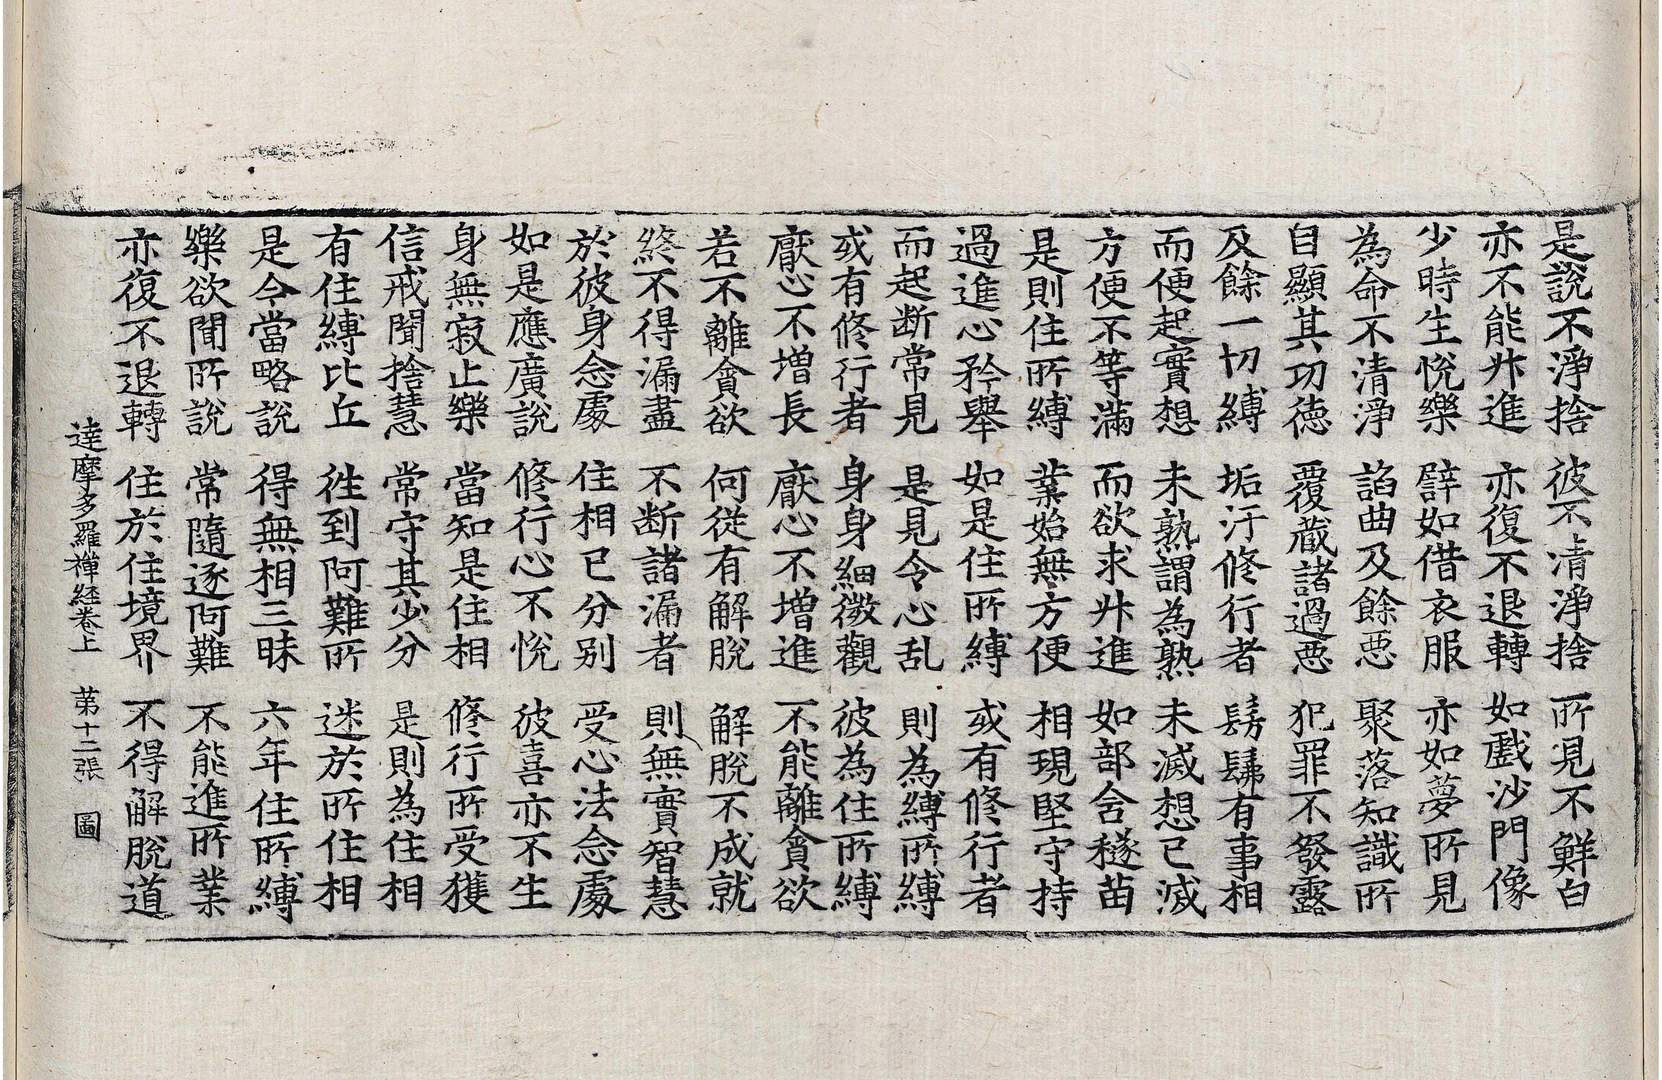 是說不淨捨　彼不清淨捨　所見不鮮白
亦不能升進　亦復不退轉　如戲沙門像
少時生悅樂　譬如借衣服　亦如夢所見
為命不清淨　諂曲及餘惡　聚落知識所
自顯其功德　覆藏諸過惡　犯罪不發露
及餘一切縛　垢汙修行者　髣髴有事相
而便起實想　未熟謂為熟　未滅想已滅
方便不等滿　而欲求升進　如部舍穟苗
是則住所縛　業始無方便　相現堅守持
過進心矜舉　如是住所縛　或有修行者
而起断常見　是見令心乱　則為縛所縛
或有修行者　身身細微觀　彼為住所縛
厭心不增長　厭心不增進　不能離貪欲
若不離貪欲　何從有解脫　解脫不成就
終不得漏盡　不断諸漏者　則無實智慧
於彼身念處　住相已分別　受心法念處
如是應廣說　修行心不悅　彼喜亦不生
身無寂止樂　當知是住相　修行所受獲
信戒聞捨慧　常守其少分　是則為住相
有住縛比丘　往到阿難所　迷於所住相
是今當略說　得無相三昧　六年住所縛
樂欲聞所說　常隨逐阿難　不能進所業
亦復不退轉　住於住境界　不得解脫道
達摩多羅禪経卷上　第十二張　圖